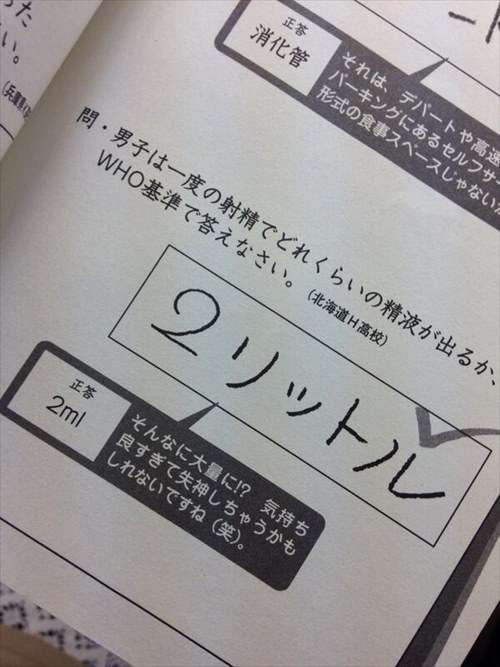 った
い。
(兵庫県
正答
消化管
それは、デパートや高速
パーキングにあるセルフサー
形式の食事スペースじゃない
問・男子は一度の射精でどれくらいの精液が出るか、
WHO基準で答えなさい。(北海道H高校)
2リットル
正答
2ml
そんなに大量に!? 気持ち
良すぎて失神しちゃうかも
しれないですね(笑)。